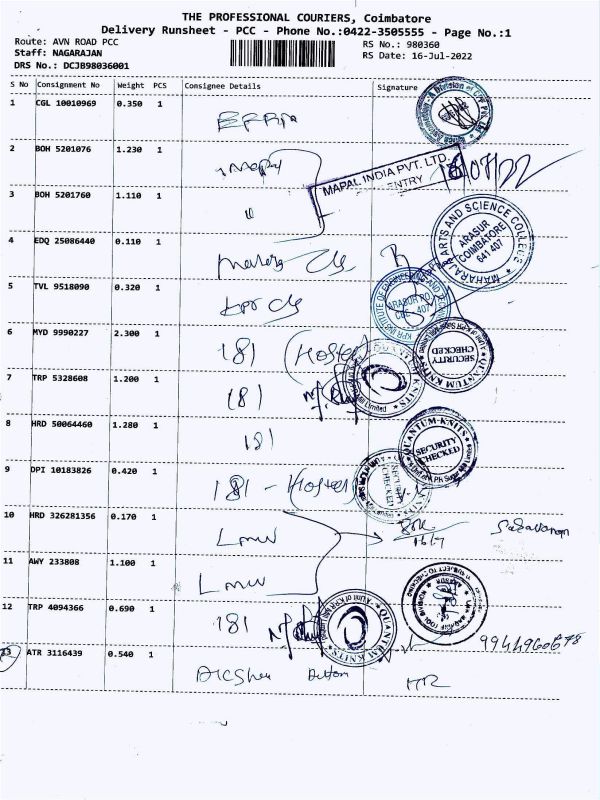 THE PROFESSIONAL COURIERS, Coimbatore
Delivery Runsheet - PCC - Phone No.:0422-3505555 - Page No.:1
Route: AVN ROAD PCC
RS No.: 980360
Staff: NAGARAJAN
RS Date: 16-Jul-2022
DRS No.: DCJB98036001
S No Consignment No Weight PCS Consignee Details Signature
1 CGL 10010969 0.350 1
2 BOH 5201076 1.230 1
MAPAL INDIA PVT. LTD.
ENTRY
3 BOH 5201760 1.110 1 "
MAHARAJA ARTS AND SCIENCE COLLEGE
ARASUR
COIMBATORE
641 407
4 EDQ 25086440 0.110 1
5 TVL 9518090 0.320 1 KPR Clg
6 MYD 9990227 2.300 1 181 (Hostel)
SECURITY
CHECKED
QUANTUM KNITS
7 TRP 5328608 1.200 1 181
8 HRD 50064460 1.280 1 181
QUANTUM-KNITS
SECURITY
CHECKED
9 DPI 10183826 0.420 1 181 - (Hostel)
10 HRD 326281356 0.170 1 LMW
16/7
11 AWY 233808 1.100 1 LMW
12 TRP 4094366 0.690 1 181
QUANTUM KNITS
13 ATR 3116439 0.540 1
9944960678
HR